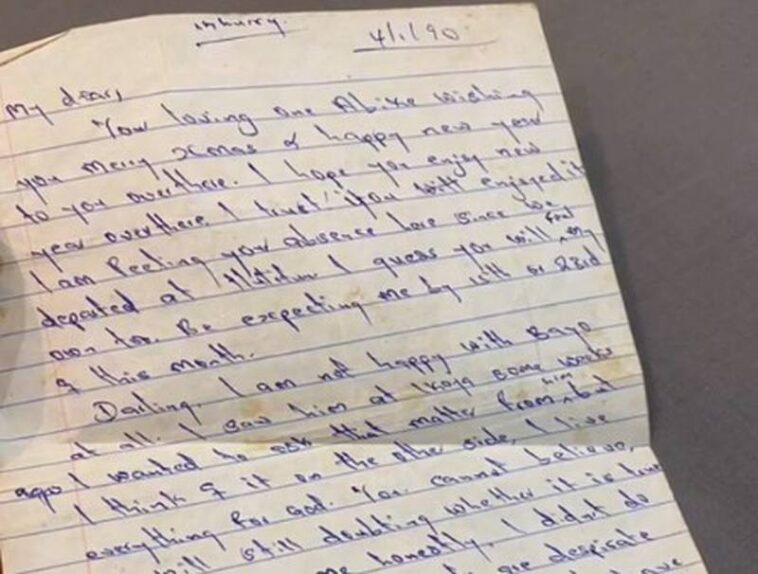 in hurry.
4/1/90
My dear,
Your loving one Abike wishing
you merry Xmas & happy new year
to you overthere. I hope you enjoy new
year overthere. I trust! you will enjoyed it
I am feeling your absence here since we
departed at I guess you will feel my
own too. Be expecting me by 15th or 23rd
of this month.
Darling. I am not happy with Bayo
at all. I saw him at Ikoja some weeks
ago I wanted to ask that matter from him but
I think of it on the other side, I live
everything for God. You cannot believe,
will still doubting whether it is true
me honestly. I didn't do
are despirate